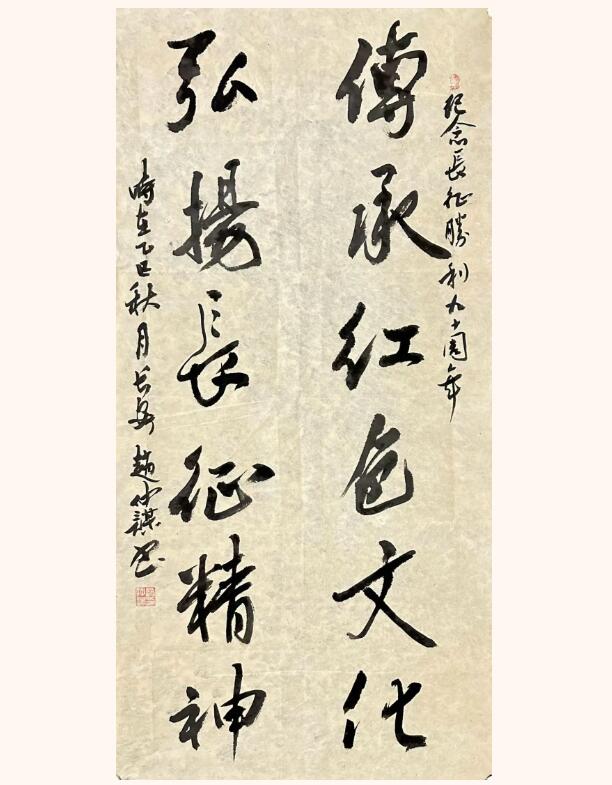 紀念長征勝利九十周年
傳承红色文化
弘揚長征精神
時在乙巳秋月长安趙仲謀书